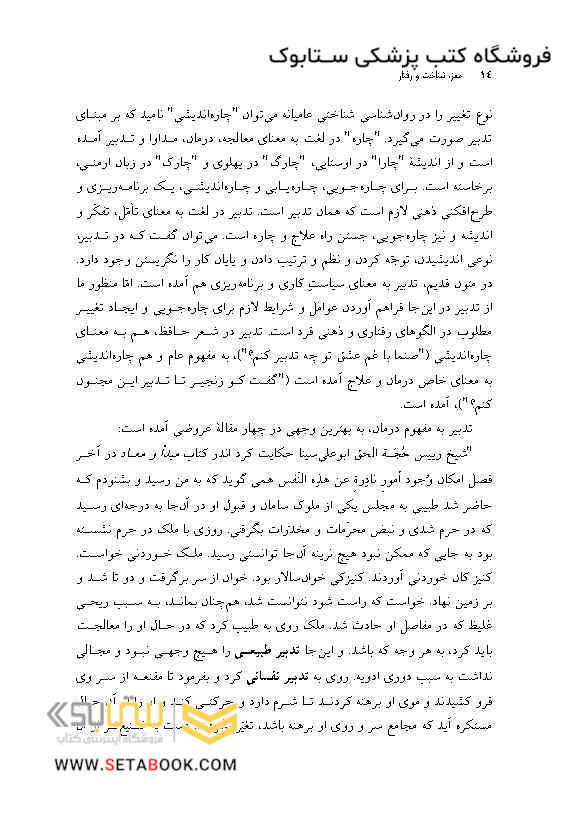 فروشگاه کتب پزشکی ســتابوک
١٤ مغز، شناخت و رفتار
نوع تغییر را در روان‌شناسی شناختی عامیانه می‌توان "چاره‌اندیشی" نامید که بر مبنـای
تدبیر صورت می‌گیرد. "چاره" در لغت به معنای معالجه، درمان، مـداوا و تـدبیر آمـده
است و از اندیشهٔ "چارا" در اوستایی، "چارگ" در پهلوی و "چارک" در زبان ارمنـی،
برخاسته است. بـرای چـاره‌جـویی، چـاره‌یـابی و چـاره‌اندیشـی، یـک برنامـه‌ریـزی و
طرح‌افکنی ذهنی لازم است که همان تدبیر است. تدبیر در لغت به معنای تأمّل، تفکّر و
اندیشه و نیز چاره‌جویی، جستن راه علاج و چاره است. می‌توان گفـت کـه در تـدبیر،
نوعی اندیشیدن، توجّه کردن و نظم و ترتیب دادن و پایان کار را نگریستن وجود دارد.
در متون قدیم، تدبیر به معنای سیاستِ کاری و برنامه‌ریزی هم آمده است. امّا منظور ما
از تدبیر در این‌جا فراهم آوردن عوامل و شرایط لازم برای چاره‌جـویی و ایجـاد تغییـر
مطلوب در الگوهای رفتاری و ذهنی فرد است. تدبیر در شـعر حـافظ، هـم بـه معنـای
چاره‌اندیشی ("صنما با غم عشق تو چه تدبیر کنم؟")، به مفهوم عام و هم چاره‌اندیشی
به معنای خاص درمان و علاج آمده است ("گفـت کـو زنجیـر تـا تـدبیر ایـن مجنـون
کنم؟")، آمده است.
تدبیر به مفهوم درمان، به بهترین وجهی در چهار مقالهٔ عروضی آمده است:
"شیخ رییس حُجّـة الحق ابوعلی‌سینا حکایت کرد اندر کتاب مبدأ و معـاد در آخـر
فصل امکان وُجود اُمورٍ نادِرةٍ عن هذهِ النَفس همی گوید که به من رسید و بشنودم کـه
حاضر شد طبیبی به مجلس یکی از ملوک سامان و قبول او در آن‌جا به درجه‌ای رسـید
که در حرم شدی و نبض محرّمات و مخدّرات بگرفتی. روزی با ملک در حرم نشسـته
بود به جایی که ممکن نبود هیچ نرینه آن‌جا توانستی رسید. ملـک خـوردنی خواسـت.
کنیزکان خوردنی آوردند. کنیزکی خوان‌سالار بود. خوان از سر برگرفت و دو تا شـد و
بر زمین نهاد. خواست که راست شود نتوانست شد، هم‌چنان بمانـد، بـه سـبب ریحـی
غلیظ که در مفاصل او حادث شد. ملک روی به طبیب کرد که در حـال او را معالجـت
باید کرد، به هر وجه که باشد. و این‌جا تدبیر طبیعـی را هـیچ وجهـی نبـود و مجـالی
نداشت به سبب دوری ادویه. روی به تدبیر نفسانی کرد و بفرمود تا مقنعـه از سـر وی
فرو کشیدند و موی او برهنه کردنـد تـا شـرم دارد و حرکتـی کنـد و او را آن حـال
مستکره آید که مجامع سر و روی او برهنه باشد، تغیّر
ستابوک
فروشگاه اینترنتی کتاب
WWW.SETABOOK.COM